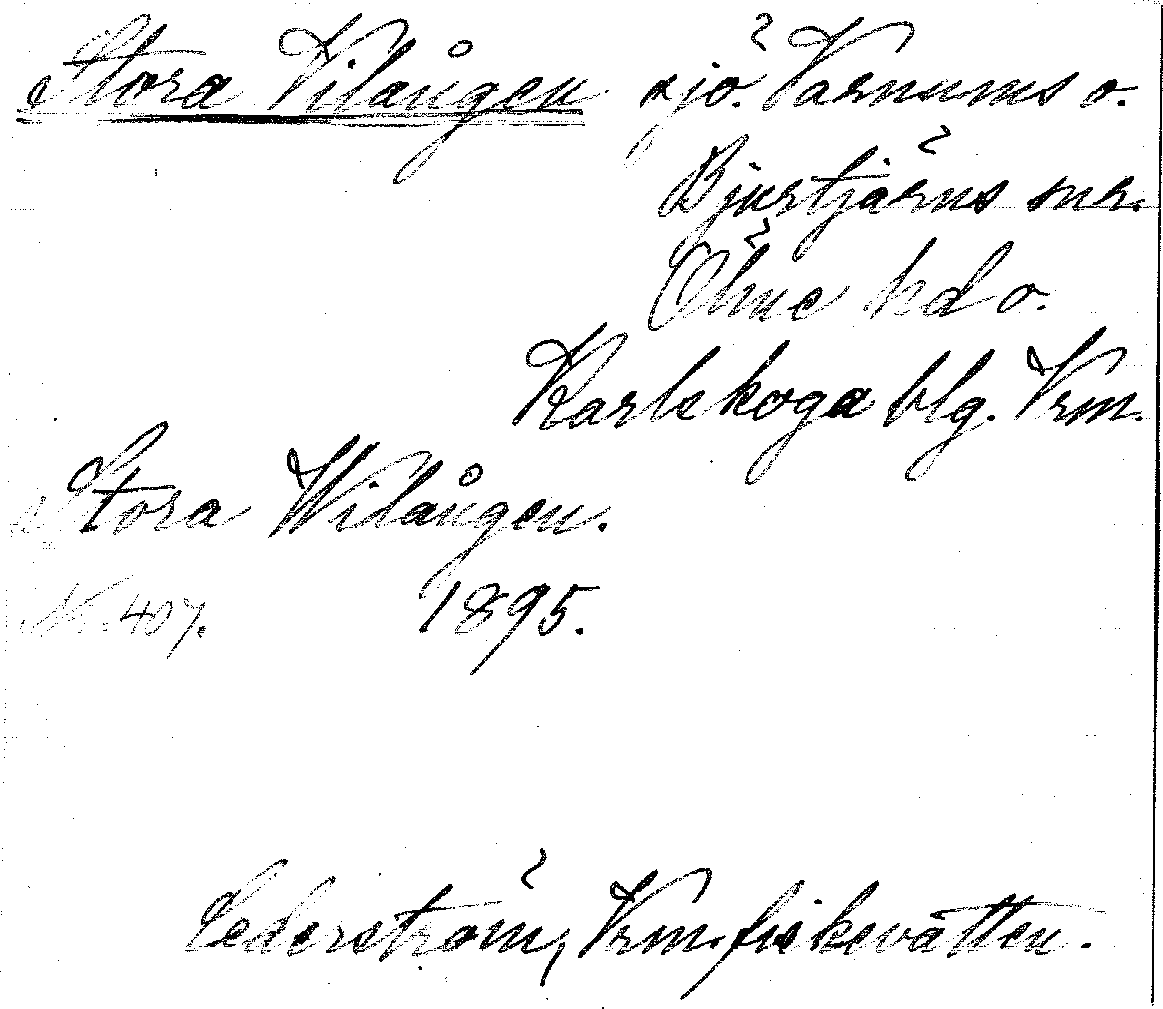 Stora Vilången sjö. Varnums o.
Bjurtjärns snr.
Ölme hd o.
Karlskoga blg. Vrm.
Stora Wilången.
N. 407. 1895.
Cederström, Vrm. fiskevatten.